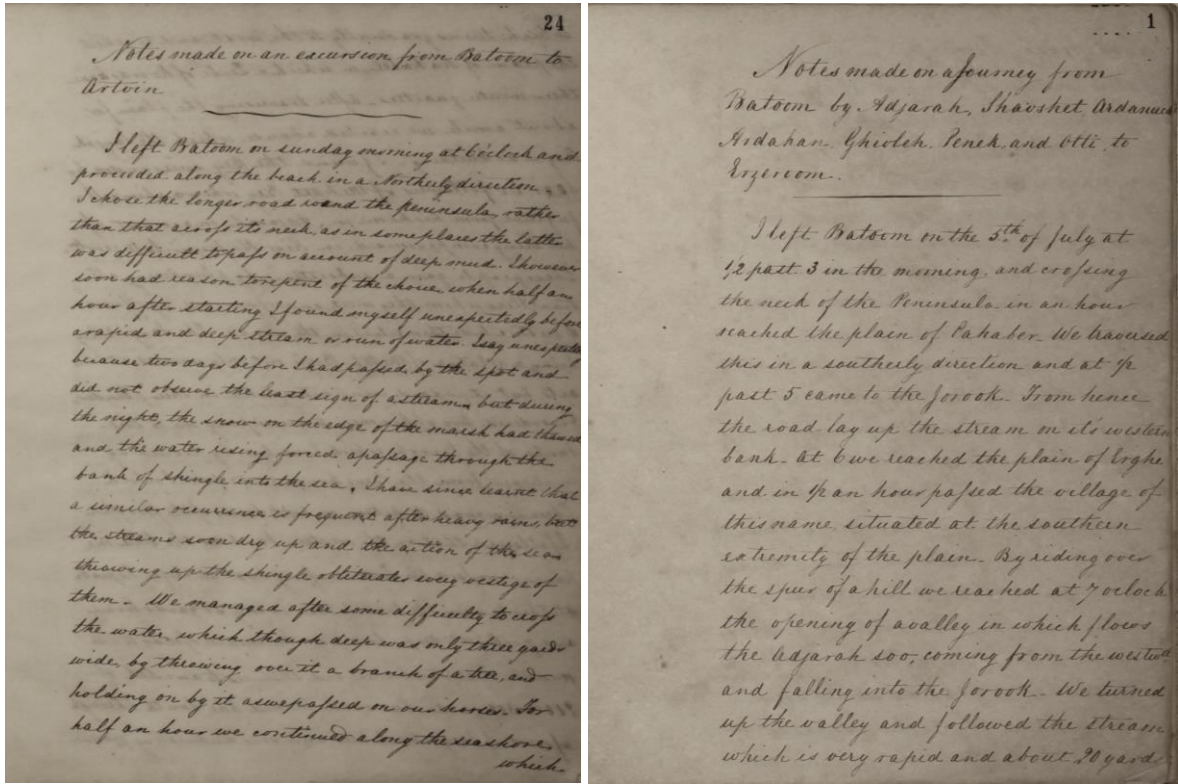 24
Notes made on an excursion from Batoom to
Artvin
I left Batoom on sunday morning at 6 oclock and
proceeded along the beach in a Northerly direction.
I chose the longer road round the peninsula, rather
than that across it's neck, as in some places the latter
was difficult to pass on account of deep mud. I however
soon had reason to repent of the choice, when half an
hour after starting I found myself unexpectedly before
a rapid and deep stream or run of water. I say unexpectedly
because two days before I had passed by the spot and
did not observe the least sign of a stream, but during
the night, the snow on the edge of the marsh had thawed
and the water rising forced a passage through the
bank of shingle into the sea. I have since learnt that
a similar occurrence is frequent after heavy rains, but
the streams soon dry up and the action of the sea
throwing up the shingle obliterates every vestige of
them. We managed after some difficulty to cross
the water, which though deep was only three yards
wide, by throwing over it a branch of a tree, and
holding on by it as we passed on our horses. For
half an hour we continued along the seashore,
which
1
Notes made on a Journey from
Batoom by Adjarah, Shavsket, Ardanuch
Ardahan, Ghioleh, Penek, and Olti, to
Erzeroom.
I left Batoom on the 5th of July at
1/2 past 3 in the morning, and crossing
the neck of the Peninsula in an hour
reached the plain of Cahaber. We traversed
this in a southerly direction and at 1/2
past 5 came to the Jorook. From hence
the road lay up the stream on it's western
bank. At 6 we reached the plain of Erghe
and in 1/2 an hour passed the village of
this name, situated at the southern
extremity of the plain. By riding over
the spur of a hill we reached at 7 oclock
the opening of a valley in which flows
the Adjarah soo, coming from the westwd
and falling into the Jorook. We turned
up the valley and followed the stream
which is very rapid and about 20 yards